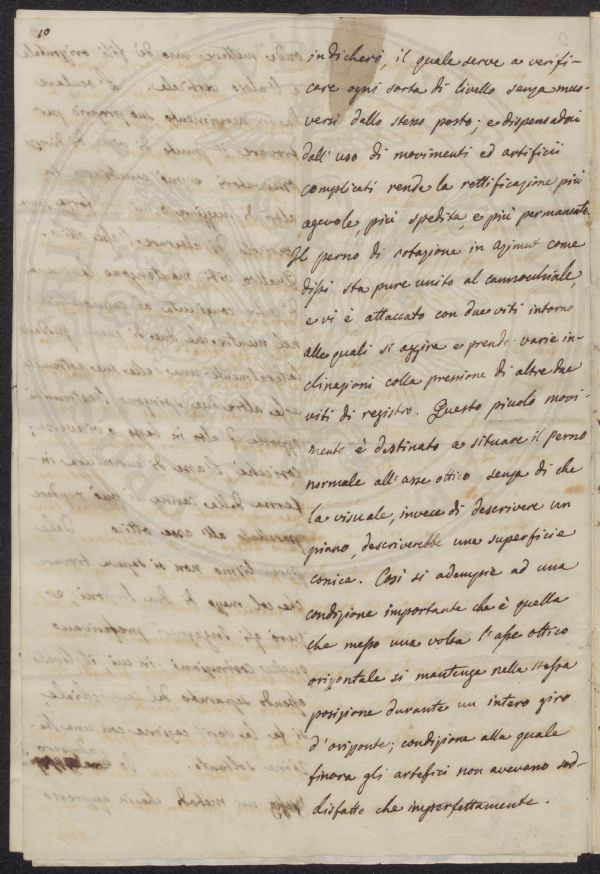 10
indicherò, il quale serve a verifi-
care ogni sorta di livello senza muo-
versi dallo stesso posto; e dispensandoci
dall'uso di movimenti ed artificii
complicati rende la rettificazione più
agevole, più spedita, e più permanente.
Il perno di rotazione in azimut come
dissi sta pure unito al cannocchiale,
e vi è attaccato con due viti intorno
alle quali si aggira e prende varie in-
clinazioni colla pressione di altre due
viti di registro. Questo piccolo movi-
mento è destinato a situare il perno
normale all'asse ottico senza di che
la visuale, invece di descrivere un
piano, descriverebbe una superficie
conica. Così si adempie ad una
condizione importante che è quella
che messo una volta l'asse ottico
orizzontale si mantenga nella stessa
posizione durante un intero giro
d'orizzonte; condizione alla quale
finora gli artefici non avevano sod-
disfatto che imperfettamente.